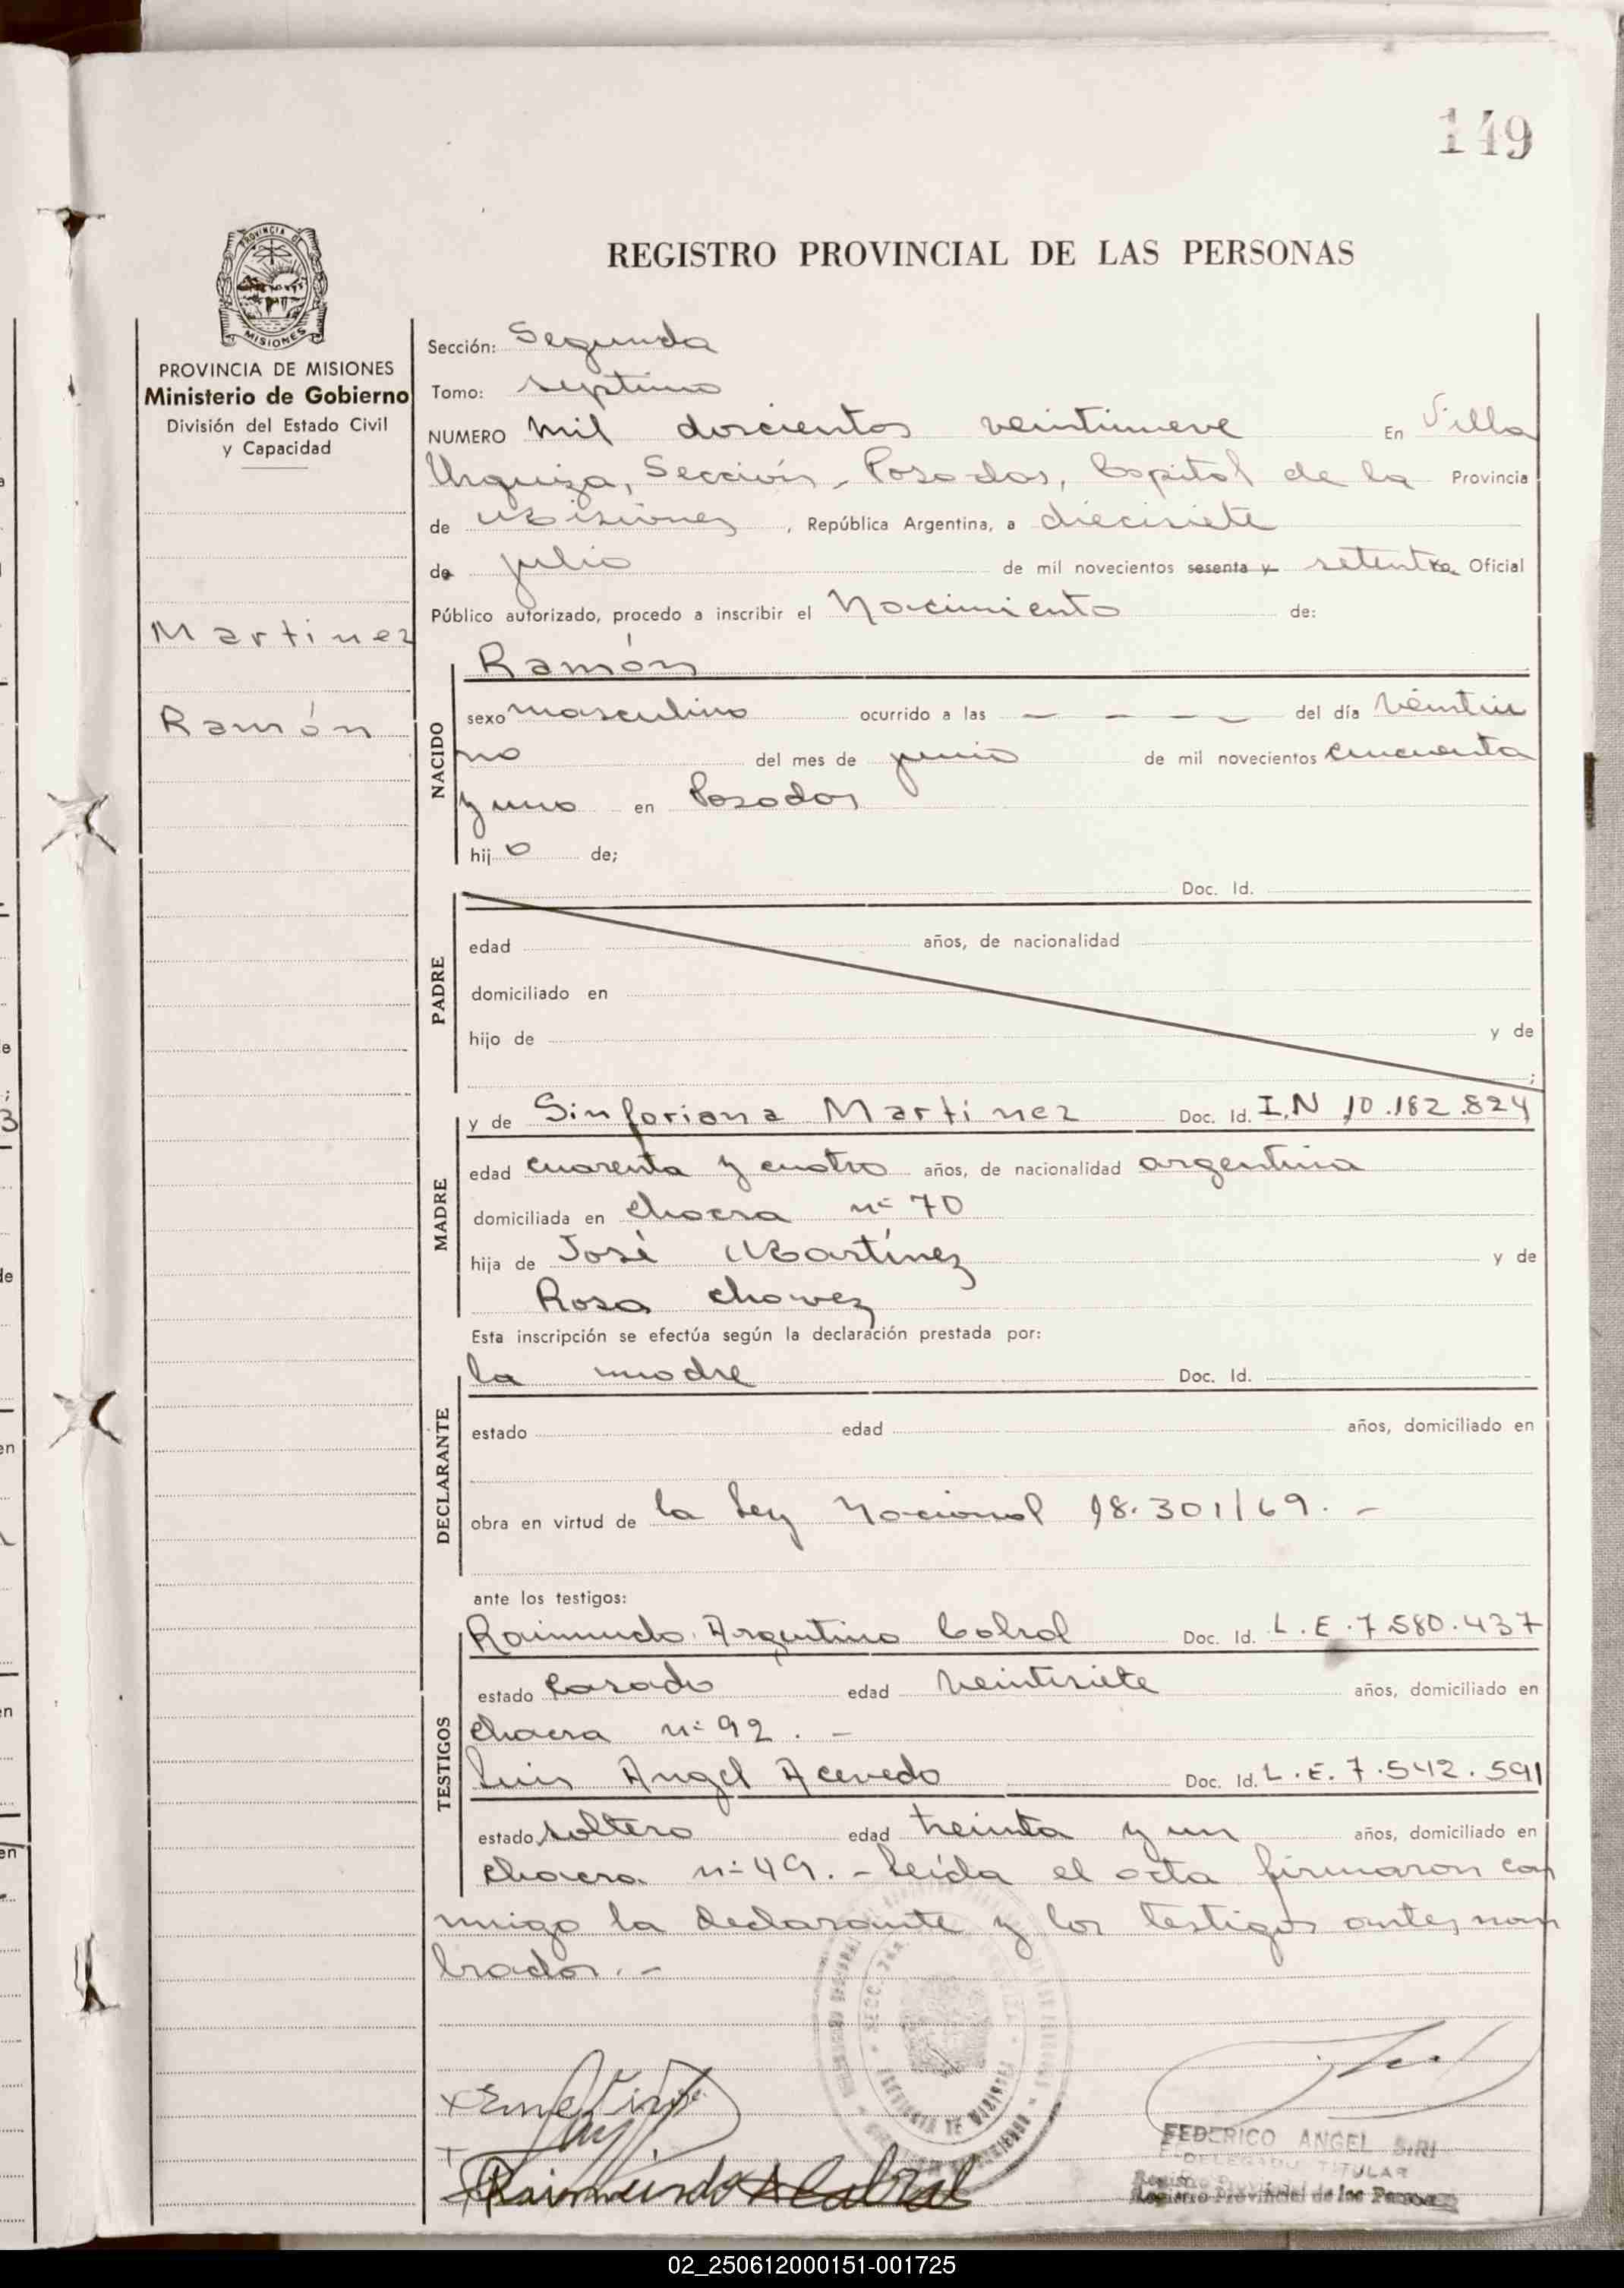 149
REGISTRO PROVINCIAL DE LAS PERSONAS
PROVINCIA DE MISIONES
Ministerio de Gobierno
División del Estado Civil
y Capacidad
Martinez
Ramón
Sección: Segunda
Tomo: septimo
NUMERO mil doscientos veintinueve En Villa
Urquiza, Sección, Posadas, Capital de la Provincia
de Misiones, República Argentina, a diecisiete
de julio de mil novecientos sesenta y setenta Oficial
Público autorizado, procedo a inscribir el Nacimiento de:
NACIDO
Ramón
sexo masculino ocurrido a las — — — — del día veintiu
no del mes de junio de mil novecientos cincuenta
y uno en Posadas
hijo de;
PADRE
Doc. Id.
edad años, de nacionalidad
domiciliado en
hijo de y de
;
MADRE
y de Sinforiana Martinez Doc. Id. I.N 10.182.824
edad cuarenta y cuatro años, de nacionalidad argentina
domiciliada en chacra nº 70
hija de José Martínez y de
Rosa Chavez
Esta inscripción se efectúa según la declaración prestada por:
DECLARANTE
la madre Doc. Id.
estado edad años, domiciliado en
obra en virtud de la Ley Nacional 18.301/69. -
ante los testigos:
TESTIGOS
Raimundo Argentino Cabral Doc. Id. L.E.7.580.437
estado Casado edad veintisiete años, domiciliado en
chacra nº 92. -
Luis Angel Acevedo Doc. Id. L.E.7.542.591
estado soltero edad treinta y un años, domiciliado en
chacra nº 49. - Leída el acta firmaron con
migo la declarante y los testigos antes nom
brados. -
Raimundo A Cabral
FEDERICO ANGEL SIRI
DELEGADO TITULAR
Registro Provincial de las Personas
02_250612000151-001725